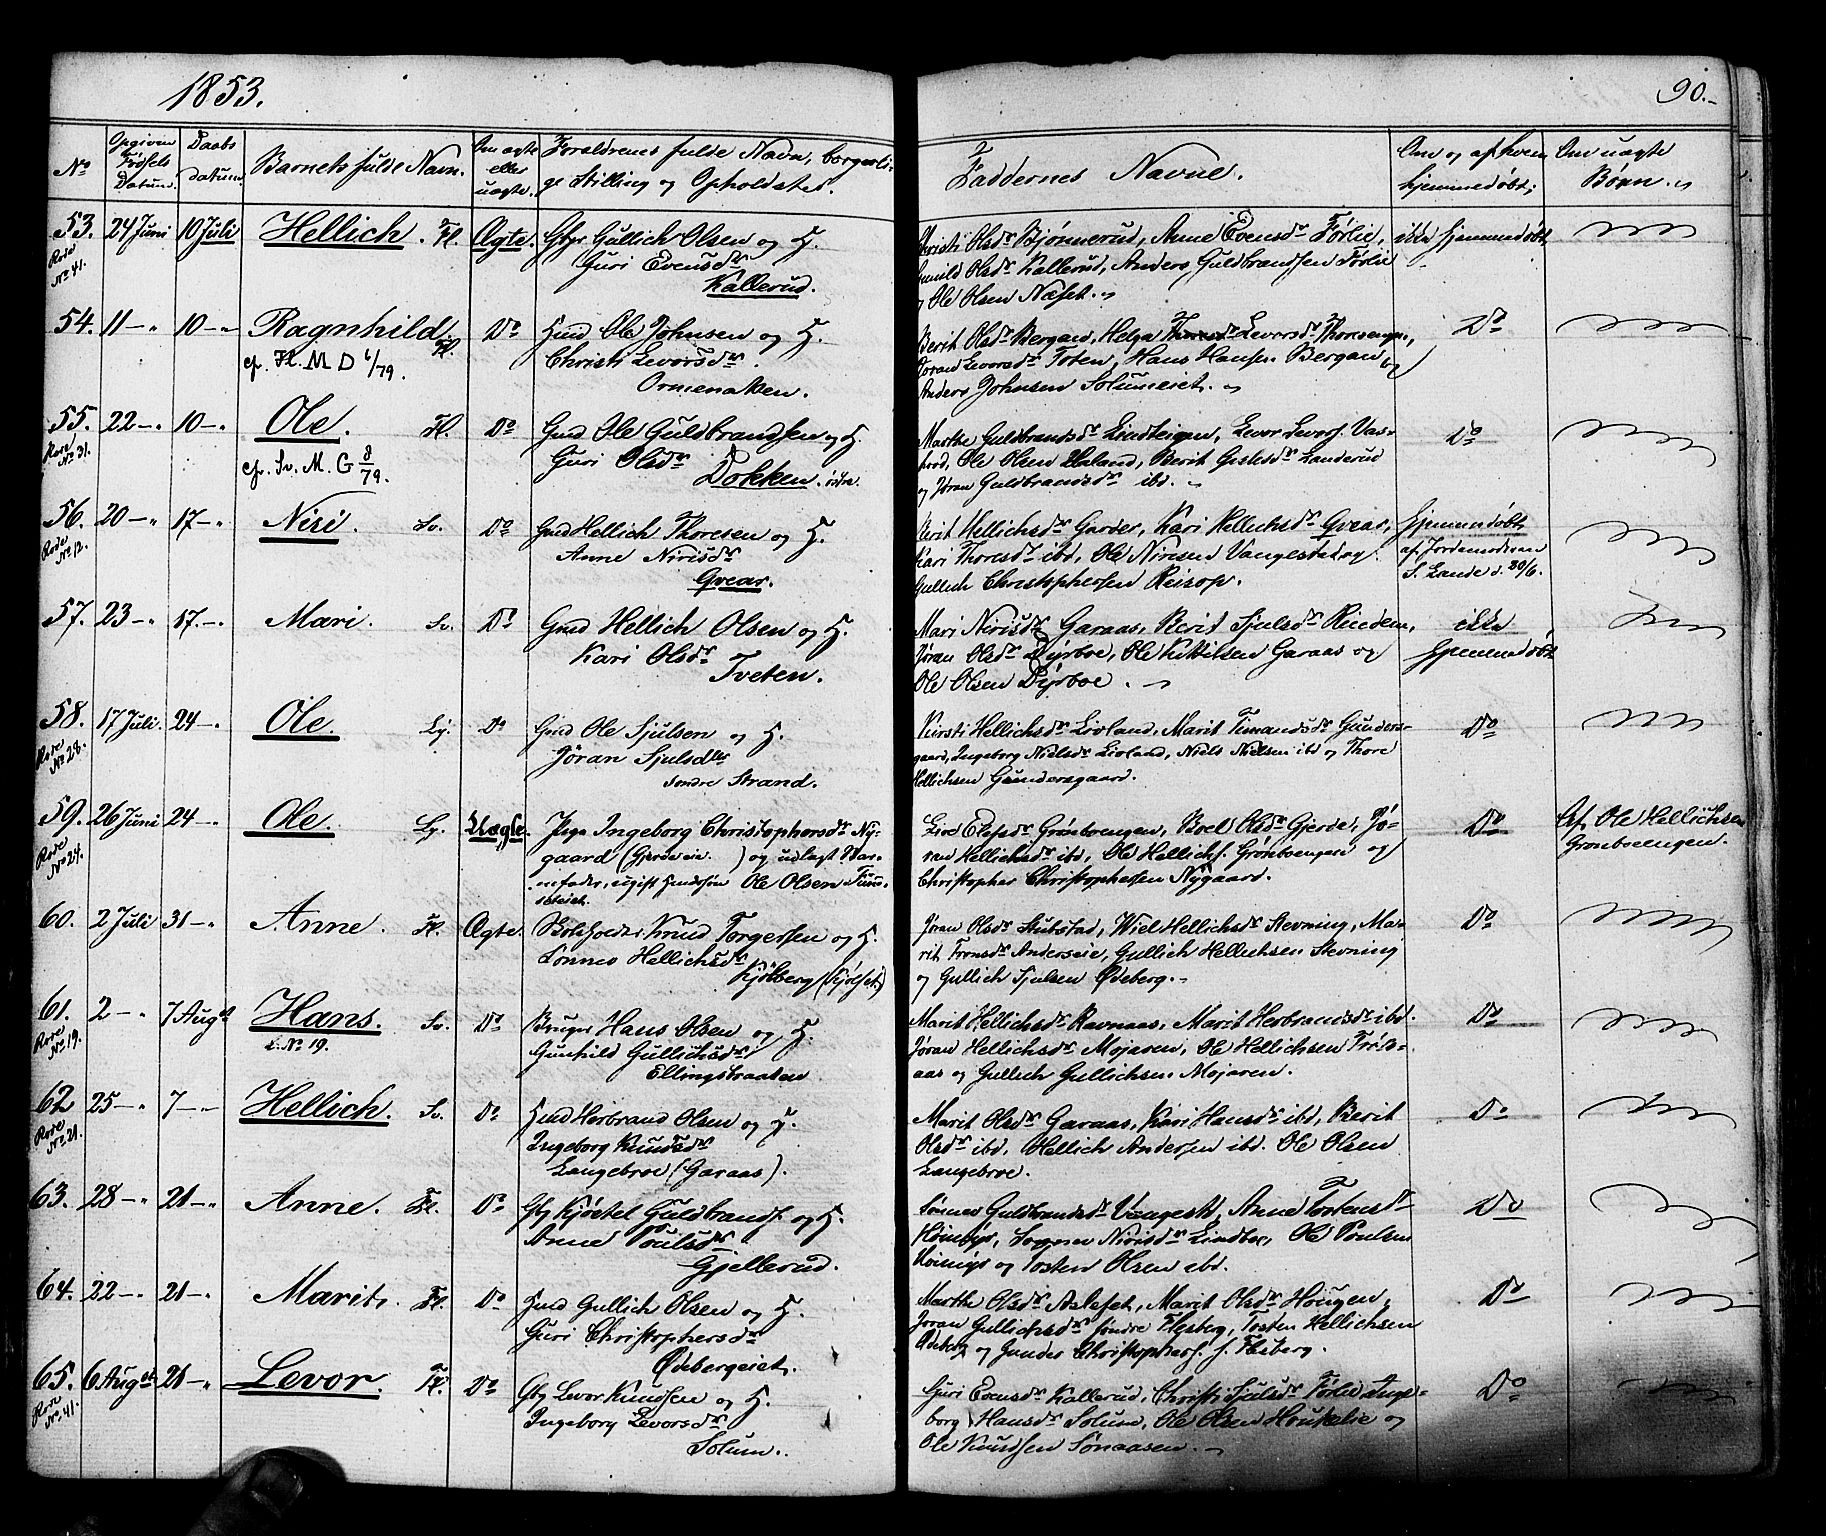 1853.
90.-
No
Opgiven Fødsels Datum.
Daabs datum.
Barnets fulde Navn.
Om ægte eller uægte.
Forældrenes fulde Navn, borgerli-
ge Stilling og Opholdsted.
Faddernes Navne.
Om og af hvem hjemmedøbt;
Om uægte Børn.
53. 24 Juni 10 Juli Hellich. Fl. Ægte. Gbr Gullich Olsen og H.
Rode No 41.
Guri Evensdr
Kallerud.
Christi Olsdr Bjønnerud, Anne Evensdr Følie, ikke hjemmedøbt
Gunild Olsdr Kallerud, Anders Guldbrandsen Følie
og Ole Olsen Næset.
54. 11 - 10 - Ragnhild Fl. Do Gmd Ole Johnsen og H.
cf. Fl. M D 6/79.
Christi Levorsdr
Ormenaken.
Berit Olsdr Bergan, Helga Levorsdr Thorsenge, Do
Jøran Levorsdr Toten, Hans Hansen Bergan og
Anders Johnsen Solumeiet.
55. 22 - 10 - Ole. Fl. Do Gmd Ole Guldbrandsen og H.
Rode No 31.
cf. Sv. M. G 8/79.
Guri Olsdr
Dokken.
Marthe Guldbrandsdr Lindteigen, Levor Levors. Vas- Do
hvod, Ole Olsen Haland, Berit Gislesdr Landerud
og Jøran Guldbrandsdr ibd.
56. 20 - 17 - Niri. Sv. Do Gmd Hellich Thoresen og H.
Rode No 12.
Anne Nirisdr
Qvear.
Berit Hellichsdr Garder, Kari Hellichsdr Qvear,
Kari Thorsdr ibd, Ole Nirisen Vangestad og
Gullich Christophersen Reisop.
Hjemmedøbt
af Jordemoderen
S. Lande d. 30/6.
57. 23 - 17. - Mari. Sv. Do Gmd Hellich Olsen og H.
Kari Olsdr
Tveten.
Mari Nirisdr Garaas, Berit Sjulsdr Rindem, ikke
Jøran Olsdr Dyrboe, Ole Kittilsen Garaas og hjemmedøbt
Ole Olsen Dyrboe.
58. 17 Juli. 24 - Ole. Ly. Do Gmd Ole Sjulsen og H.
Rode No 28.
Jøran Sjulsdtr
søndre Strand.
Kirsti Hellichsdr Livland, Marit Timandsdr Gunders- Do
gaard, Ingeborg Nielsdr Livland, Niels Nielsen ibd og Thore
Hellichsen Gundersgaard.
59. 26 Juni 24 - Ole. Ly. Uægte Pige Ingeborg Christophersdr Ny-
Rode No 24.
gaard (Gjerdeeie ) og udlagt Bar-
nefader, ugift Ole Olsen
Live Elefsdr Grønvengen, Boel Olsdr Gjerde, Jø- Do
ran Hellichsdr ibd, Ole Hellichs. Grønvengen og
Christopher Christophersen Nygaard.
Af Ole Hellichsen
Grønvengen.
60. 2 Juli 31 - Anne. Fl. Ægte. Knud Torgersen og H.
Lønnev Hellichsdr
Kjølberg (Kjølset)
Jøran Olsdr Stubstad, Wiel Hellichsdr Stevning, Ma- Do
rit Tronsdr Anderseie, Gullich Hellichsen Stevning
og Gullich Sjulsen Ødeberg.
61. 2 - 7 August Hans. Sv. Do Bruger Hans Olsen og H.
Rode No 19.
L. No 19.
Gunhild Gullichsdr
Ellingsbraaten
Marit Hellichsdr Ravnaas, Marit Herbrandsdr ibd. Do
Jøran Hellichsdr Mojaren, Ole Hellichsen Trøls-
aas og Gullich Gullichsen Mojaren.
62 25 - 7 - Hellich. Sv. Do Gmd Herbrand Olsen og H.
Rode No 21.
Ingeborg Knudsdr
Langebroe (Garaas).
Marit Olsdr Garaas, Kari Hansdr ibd, Berit Do
Olsdr ibd, Hellich Andersen ibd. Ole Olsen
Langebroe.
63. 28 - 21 - Anne. Fl. Do Gbr Kjøstel Guldbrands. og H.
Anne Poulsdr
Gjellerud.
Sønnev Guldbrandsdr Vangest., Anne Tostensdr Do
Høimyr, Nirisdr Lindboe, Ole Poulsen
Høimyr og Tosten Olsen ibd.
64. 22 - 21 - Marit. Fl. Do Gmd Gullich Olsen og H.
Guri Christophersdr
Ødebergeiet.
Marthe Olsdr Aslefet, Marit Olsdr Hougen, Do
Jøran Gullichsdr søndre Flesberg, Tosten Hellichsen
Ødeberg og Gunder Christophers. s. Flesberg.
65. 6 August 21 - Levor. Fl. Do Gbr Levor Knudsen og H.
Rode No 41.
Ingeborg Levorsdr
Solum.
Guri Evensdr Kallerud, Christi Sjulsdr Følie, Inge- Do
borg Hansdr Solum, Ole Olsen Houkelie og
Ole Knudsen Sønaasen.